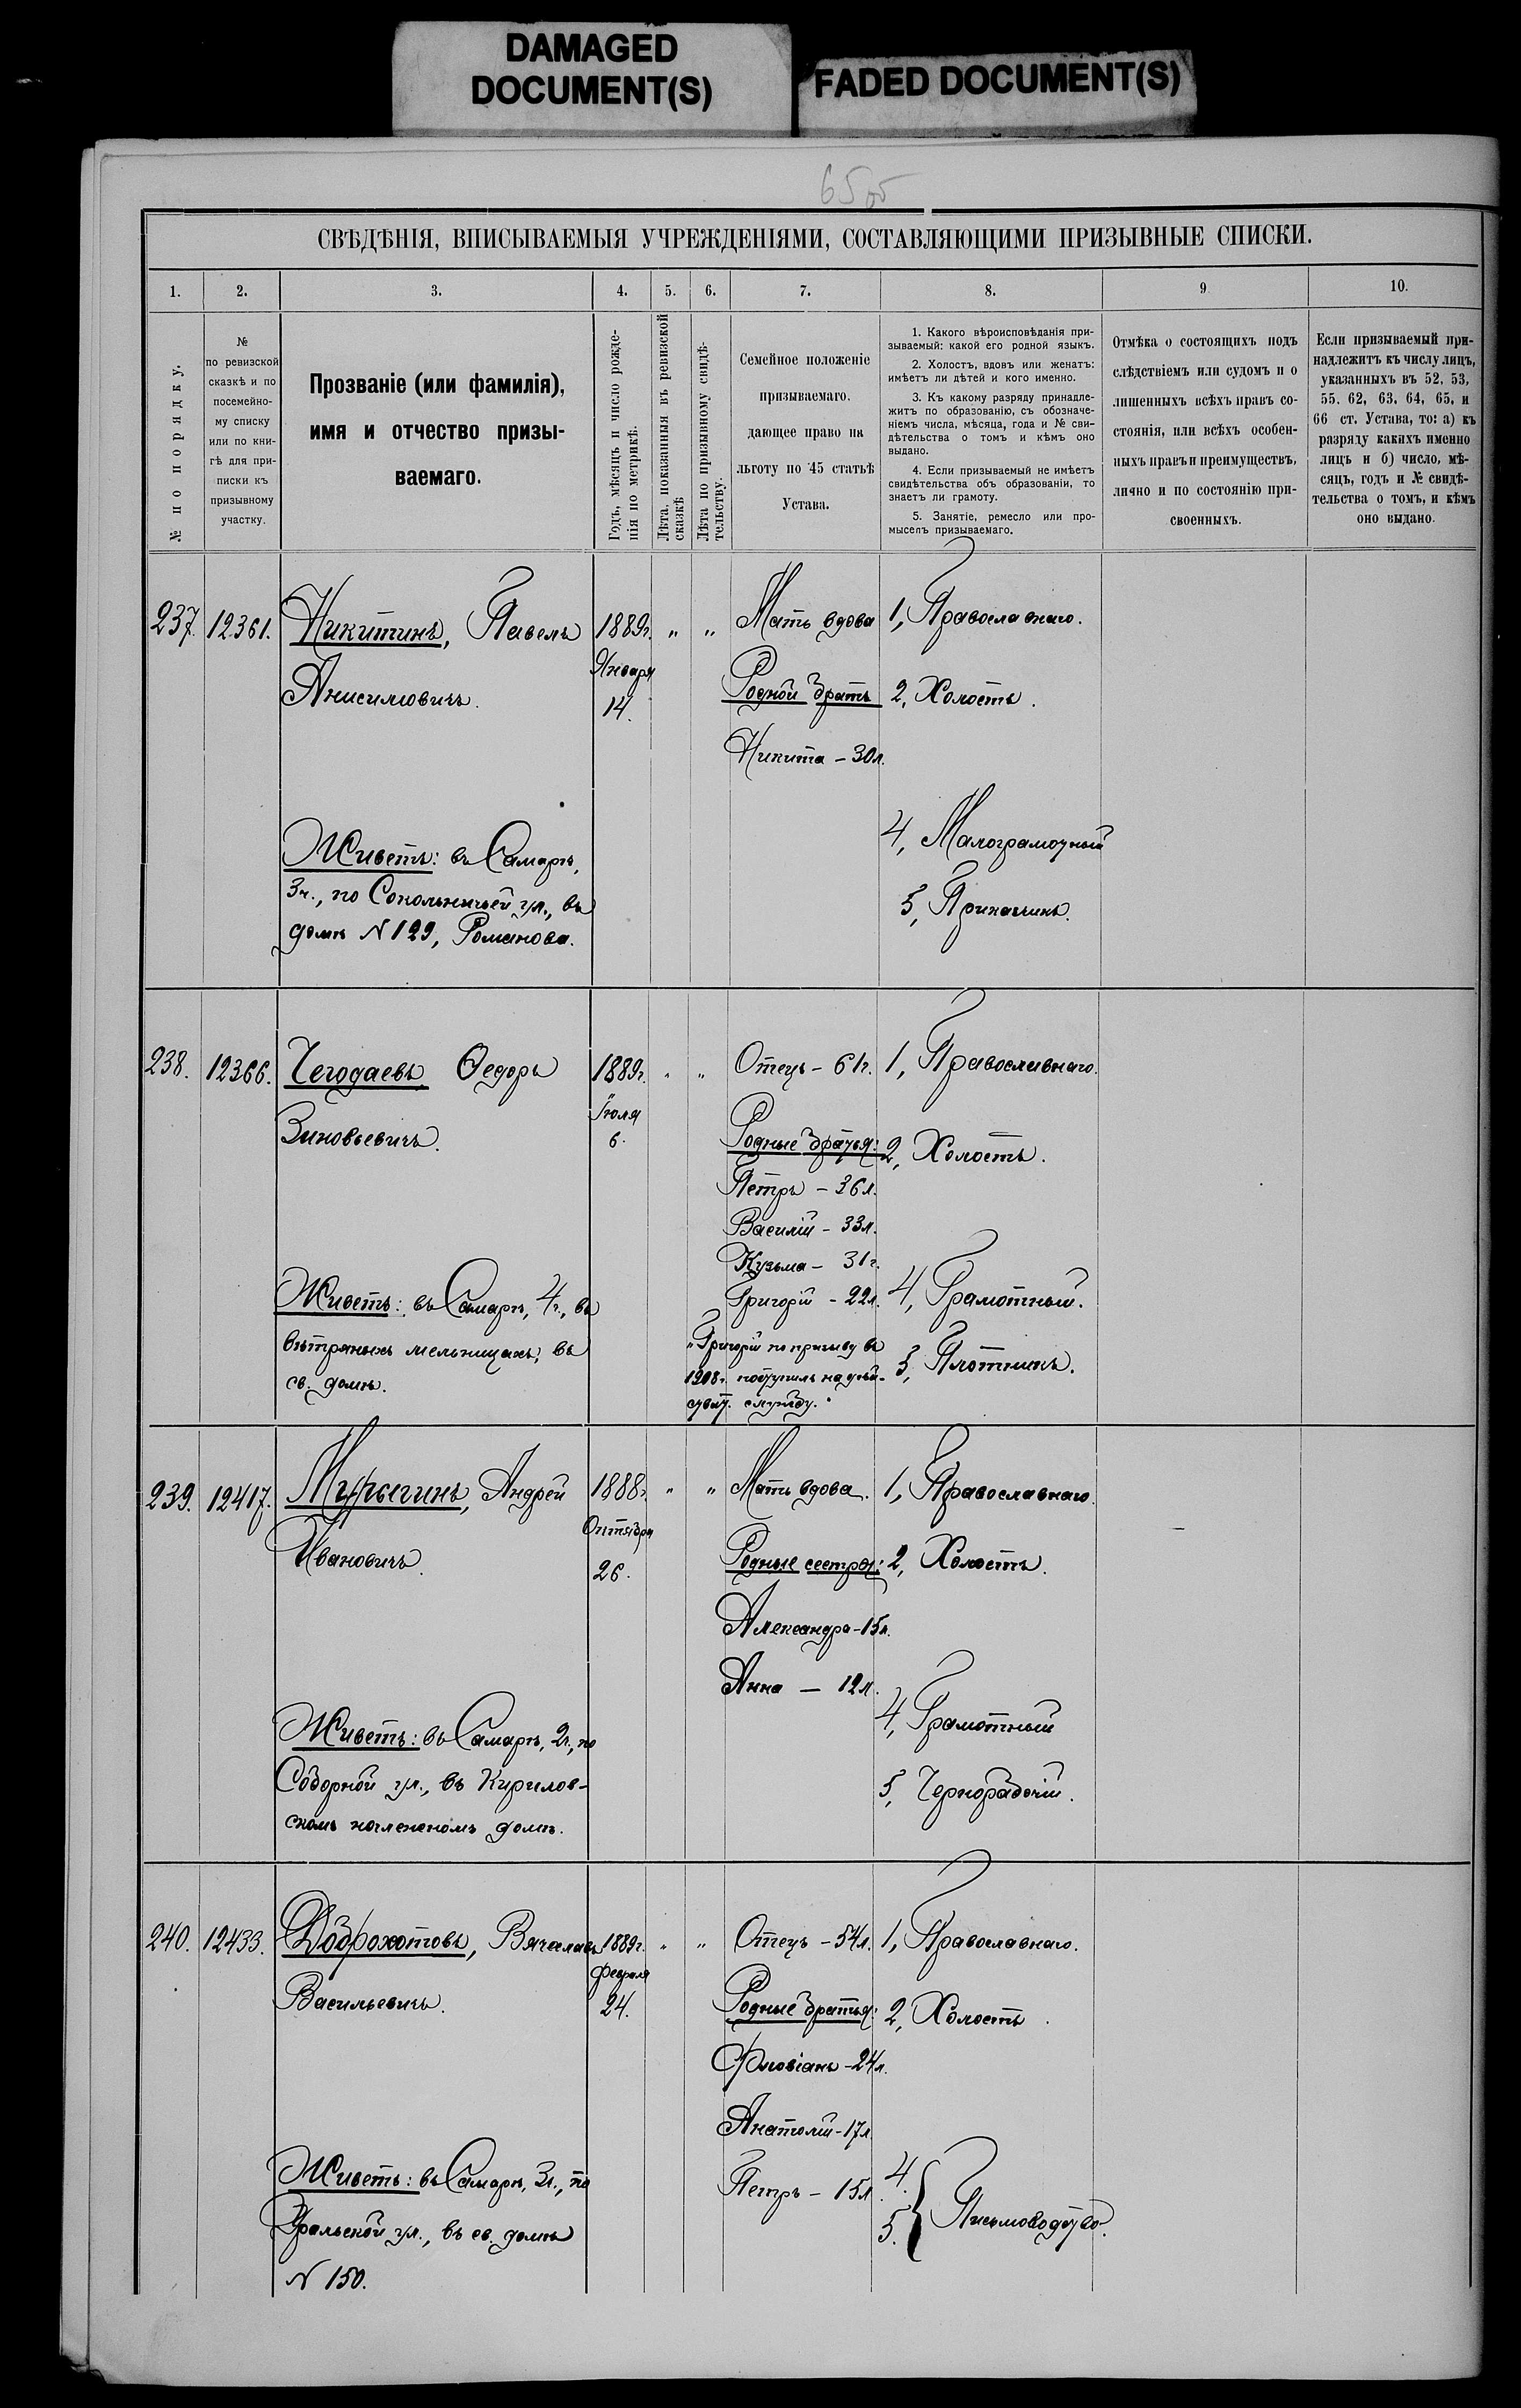 DAMAGED
DOCUMENT(S)
FADED DOCUMENT(S)
65об
СВѢДѢНІЯ, ВПИСЫВАЕМЫЯ УЧРЕЖДЕНІЯМИ, СОСТАВЛЯЮЩИМИ ПРИЗЫВНЫЕ СПИСКИ.
1.
2.
3.
4.
5.
6.
7.
8.
9
10.
№ по порядку.
№
по ревизской
сказкѣ и по
посемейно-
му списку
или по кни-
гѣ для при-
писки къ
призывному
участку.
Прозваніе (или фамилія),
имя и отчество призы-
ваемаго.
Годъ, мѣсяцъ и число рожде-
нія по метрикѣ.
Лѣта, показанныя въ ревизской
сказкѣ
Лѣта по призывному свидѣ-
тельству.
Семейное положеніе
призываемаго,
дающее право на
льготу по 45 статьѣ
Устава.
1. Какого вѣроисповѣданія при-
зываемый: какой его родной языкъ.
2. Холостъ, вдовъ или женатъ:
имѣетъ ли дѣтей и кого именно.
3. Къ какому разряду принадле-
житъ по образованію, съ обозначе-
ніемъ числа, мѣсяца, года и № сви-
дѣтельства о томъ и кѣмъ оно
выдано.
4. Если призываемый не имѣетъ
свидѣтельства объ образованіи, то
знаетъ ли грамоту.
5. Занятіе, ремесло или про-
мыселъ призываемаго.
Отмѣка о состоящихъ подъ
слѣдствіемъ или судомъ и о
лишенныхъ всѣхъ правъ со-
стоянія, или всѣхъ особен-
ныхъ правъ и преимуществъ,
лично и по состоянію при-
своенныхъ.
Если призываемый при-
надлежитъ къ числу лицъ,
указанныхъ въ 52, 53,
55. 62, 63, 64, 65, и
66 ст. Устава, то: а) къ
разряду какихъ именно
лицъ и б) число, мѣ-
сяцъ, годъ и № свидѣ-
тельства о томъ, и кѣмъ
оно выдано.
237. 12361. Никитинъ, Павелъ
Анисимовичъ.
Живетъ: въ Самарѣ,
3ч., по Сокольничьей ул., въ
домѣ N 129, Романова.
1889г.
Января
14.
" "
Мать вдова
Родной братъ
Никита – 30л.
1, Православнаго.
2, Холостъ.
4, Малограмотный
5, Прикащикъ.
238. 12366. Чегодаевъ Ѳедоръ
Зиновьевичъ.
Живетъ: въ Самарѣ, 4ч., въ
вѣтряныхъ мельницахъ, въ
св. домѣ.
1889г.
Іюля
6.
" "
Отецъ – 61г.
Родные братья:
Петръ – 36л.
Василій – 33л.
Кузьма – 31г.
Григорій – 22л.
"Григорій по призыву въ
1908г. поступилъ на дѣй-
ствит. службу."
1, Православнаго.
2, Холостъ.
4, Грамотный.
5, Плотникъ.
239. 12417. Мурыгинъ, Андрей
Ивановичъ.
Живетъ: въ Самарѣ, 2ч., по
Соборной ул., въ Кирилов-
скомъ ночлежномъ домѣ.
1888г.
Октября
26.
" "
Мать вдова.
Родные сестры:
Александра – 15л.
Анна – 12л.
1, Православнаго.
2, Холостъ.
4, Грамотный
5, Чернорабочій.
240. 12433. Доброхотовъ, Вячеславъ
Васильевичъ.
Живетъ: въ Самарѣ, 3ч., по
Уральской ул., въ св. домѣ
N 150.
1889г.
Февраля
24.
" "
Отецъ – 54л.
Родные братья:
Флавіанъ – 24л.
Анатолій – 17л.
Петръ – 15л.
1, Православнаго.
2, Холостъ.
4.
5. } Письмоводство.